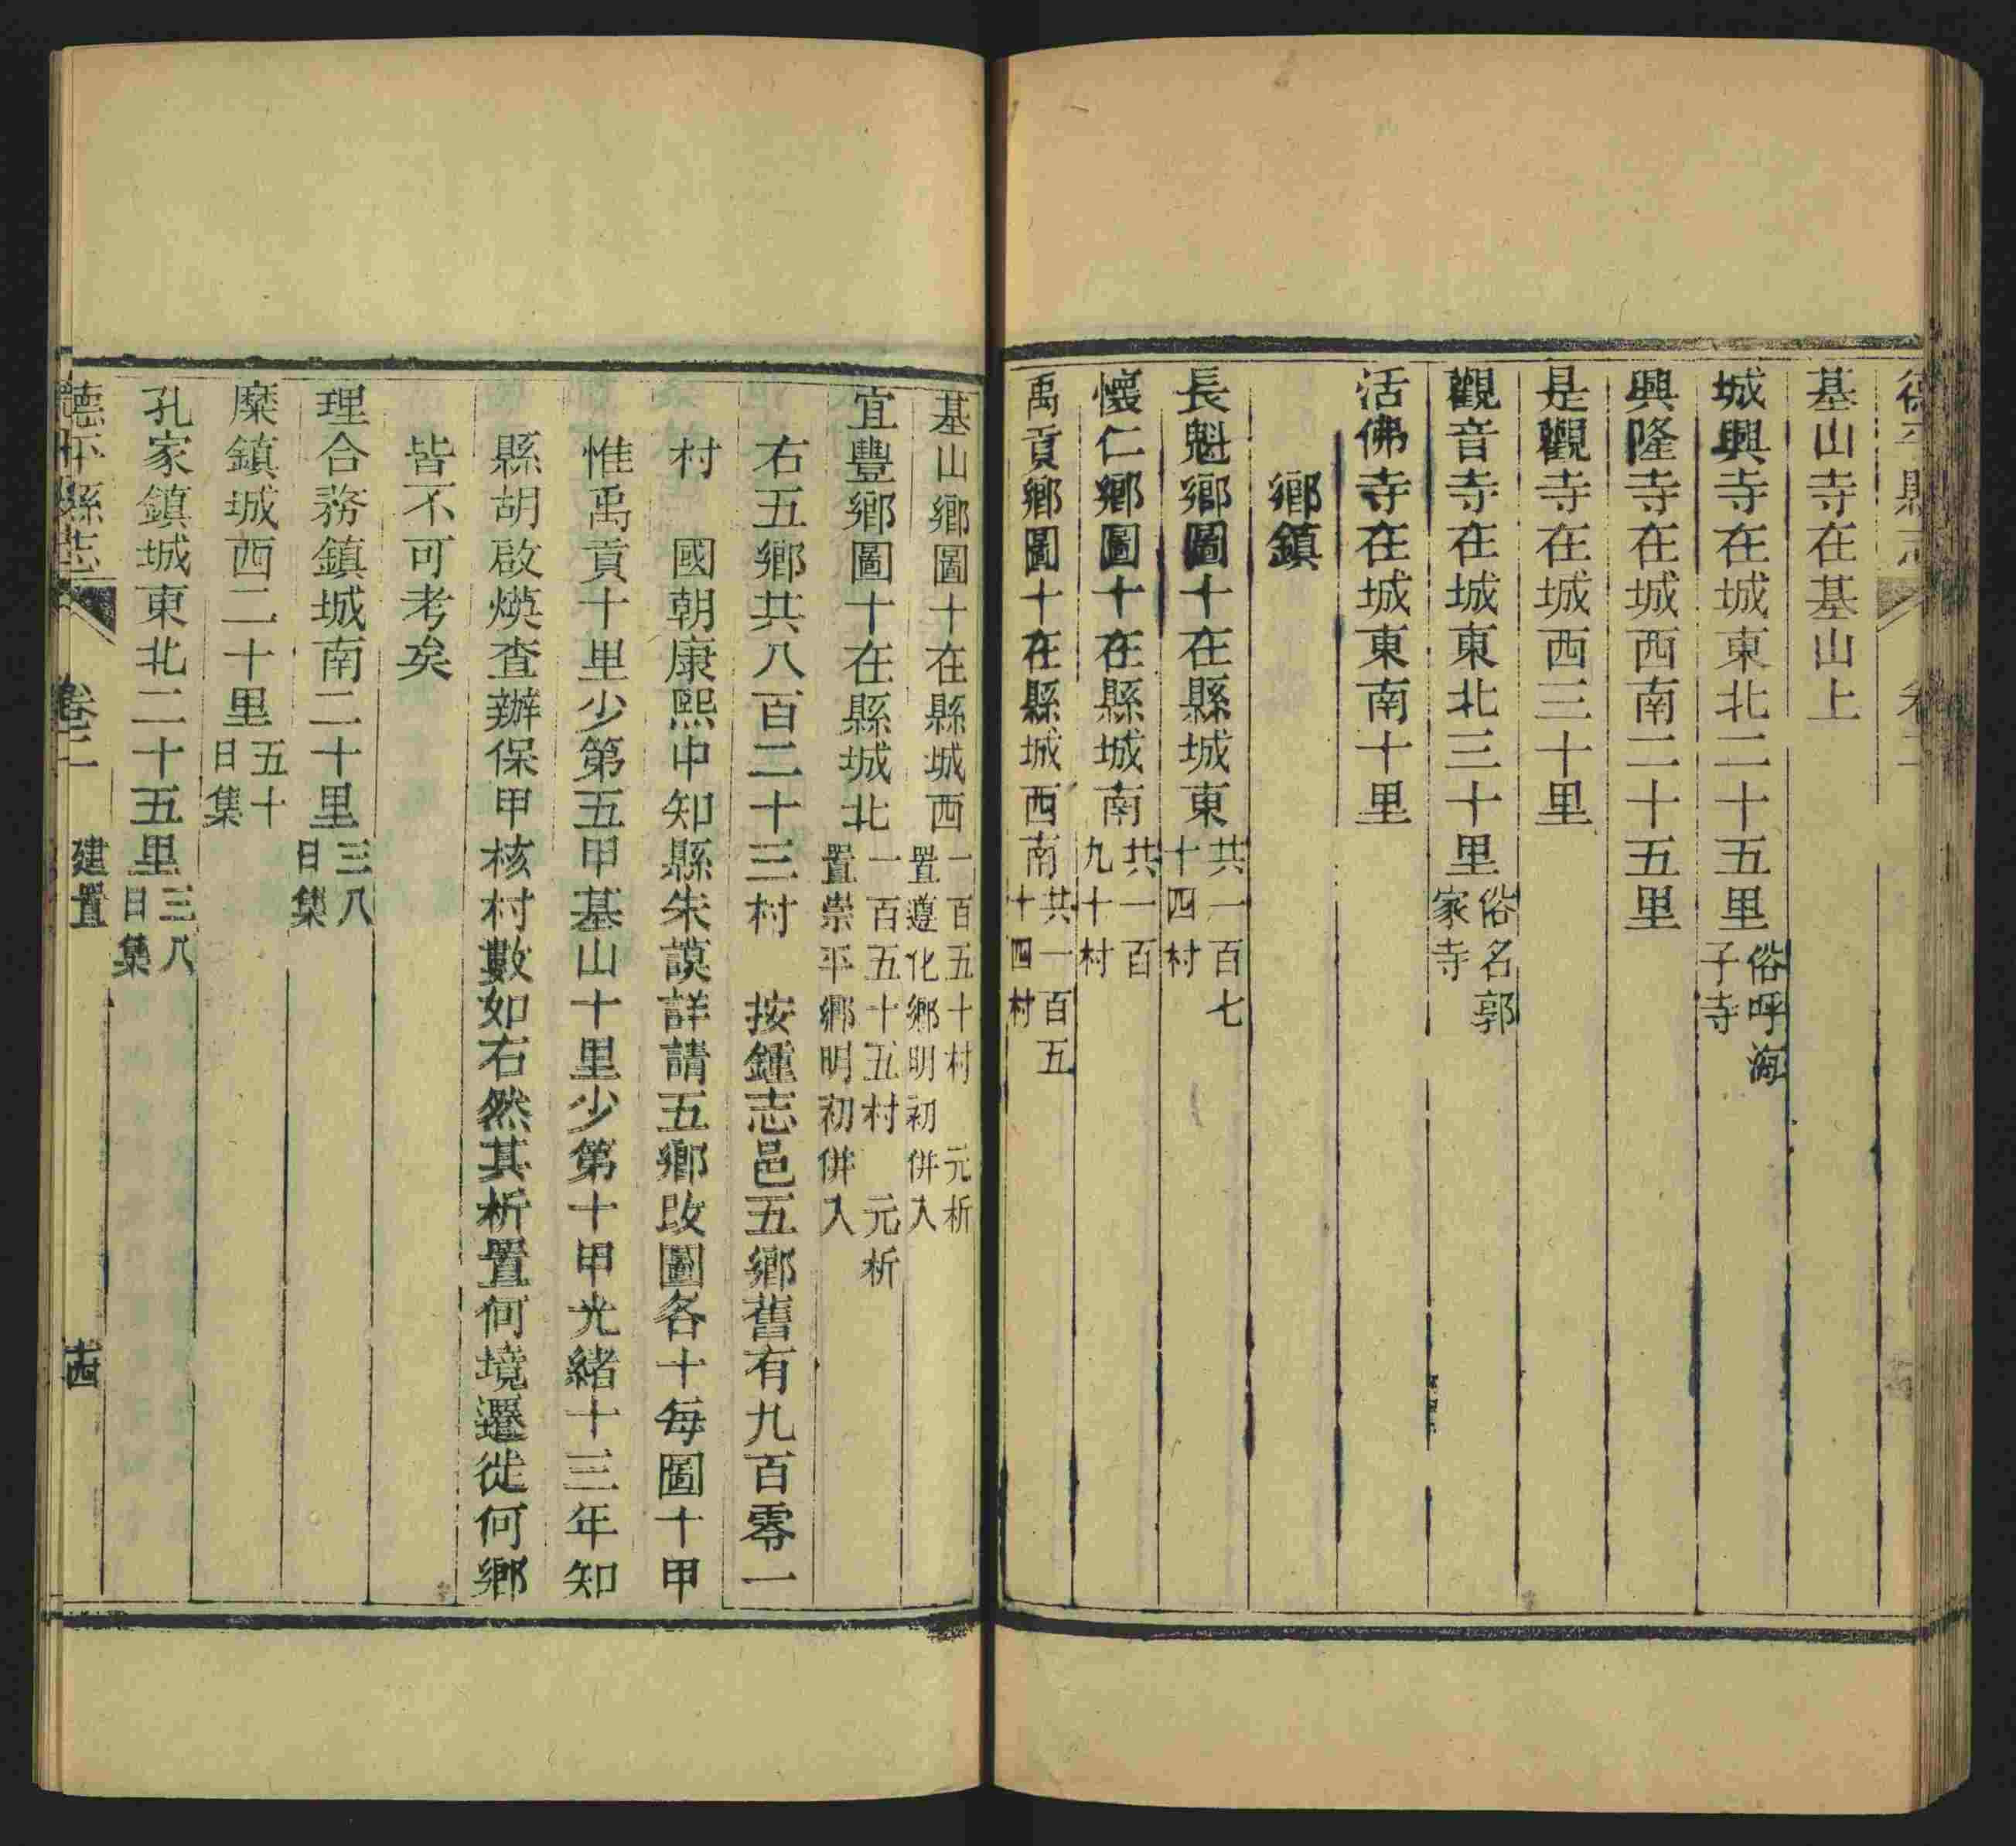 德平縣志 卷二
基山寺在基山上
城興寺在城東北二十五里俗呼淘子寺
興隆寺在城西南二十五里
是觀寺在城西三十里
觀音寺在城東北三十里俗名郭家寺
活佛寺在城東南十里
鄉鎮
長魁鄉圖十在縣城東共一百七十四村
懷仁鄉圖十在縣城南共一百九十村
禹貢鄉圖十在縣城西南共一百五十四村
基山鄉圖十在縣城西一百五十村 元析置遵化鄉明初併入
宜豐鄉圖十在縣城北一百五十五村 元析置崇平鄉明初併入
右五鄉共八百二十三村 按鍾志邑五鄉舊有九百零一
村 國朝康熙中知縣朱謨詳請五鄉改圖各十每圖十甲
惟禹貢十里少第五甲基山十里少第十甲光緒十三年知
縣胡啟煐查辦保甲核村數如右然其析置何境遷徙何鄉
皆不可考矣
理合務鎮城南二十里三八日集
糜鎮城西二十里五十日集
孔家鎮城東北二十五里三八日集
德平縣志 卷二 建置 十四